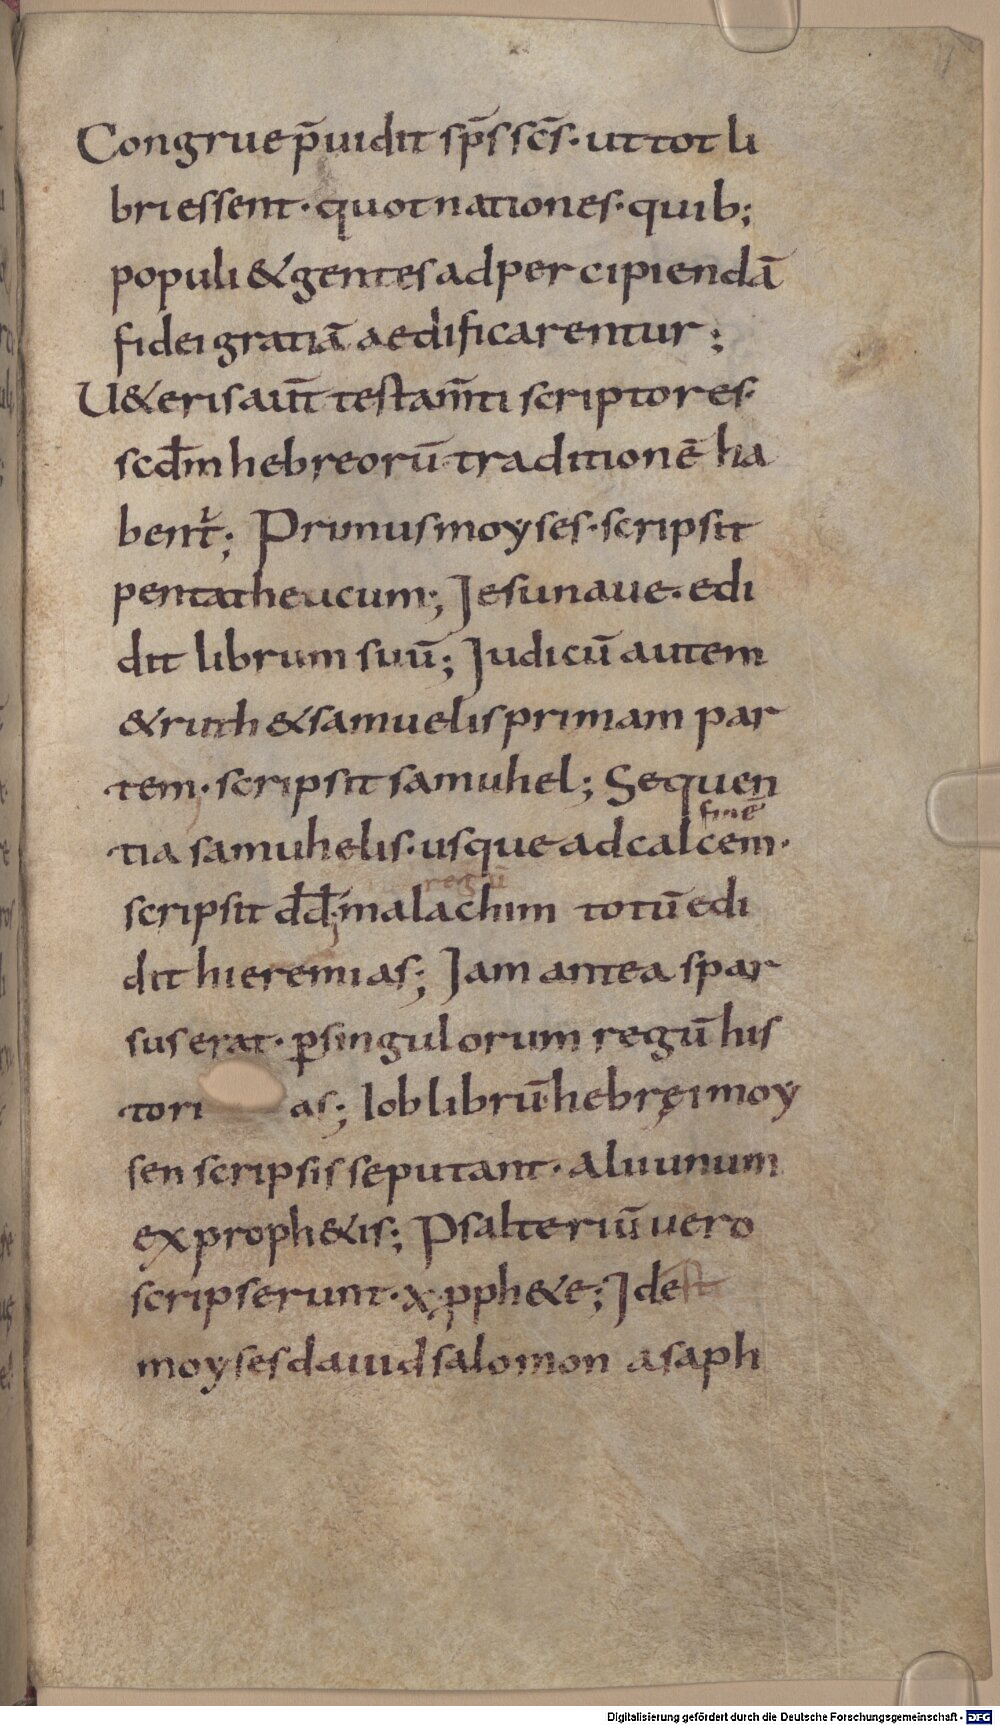 Congrue p̄uidit sp̄s sc̄s· ut tot li
bri essent· quot nationes· quib;
populi & gentes ad percipiendā
fidei gratiā aedificarentur;
U&eris aut̄ testam̄ti scriptores·
scd̄m hebreorū traditionē ha
bent̄; Primus moyses· scripsit
pentatheucum; Jesu naue· edi
dit librum suū; Judicū autem
& ruth & samuelis primam par
tem· scripsit samuhel; Sequen
finē
tia samuhelis· usque ad calcem·
regū
scripsit dd̄; malachim totū edi
dit hieremias; Jam antea spar
sus erat· p̱ singulorum regū his
tori as; Iob librū hebręi moy
sen scripsisse putant· alii unum
ex proph&is; Psalteriū uero
scripserunt· x· pph&e; Id est
moyses dauid salomon asaph
Digitalisierung gefördert durch die Deutsche Forschungsgemeinschaft - DFG